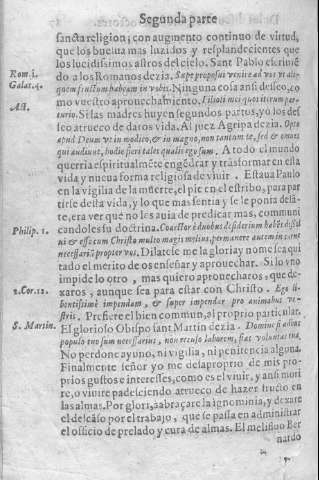 Segunda parte
sancta religion; con augmento continuo de virtud,
que los buelua mas luzidos y resplandecientes que
los lucidissimos astros del cielo. Sant Pablo escriuié
Rom. 1. do a los Romanos dezia. Sæpe proposui venire ad vos vt ali-
Galat. 4. quem fructum habeam in vobis. Ninguna cosa ansi desseo, co
Act. mo vuestro aprouechamiento. Filioli mei quos iterum par-
turio. Si las madres huyen segundos partos, yo los des
seo a trueco de daros vida. Al juez Agripa dezia. Opto
apud Deum vt in modico, & in magno, non tantum te, sed & omnes
qui audiunt, hodie fieri tales qualis ego sum. A todo el mundo
querria espiritualmēte engēdrar y trāsformar en esta
vida y nueua forma religiosa de viuir. Estaua Paulo
en la vigilia de la muerte, el pie en el estribo, para par
tirse desta vida, y lo que mas sentia y se le ponia dela-
te, era ver que no les auia de predicar mas, communi
Philip. 1. candoles su doctrina. Coarctor è duobus desiderium habēs dissol
ui & esse cum Christo multo magis melius, permanere autem in carne
necessariū propter vos. Dilatese me la gloria y no me sea qui
tado el merito de os enseñar y aprouechar. Si lo vno
impide lo otro, mas quiero aprouecharos, que de-
2. Cor. 12. xaros, aunque sea para estar con Christo. Ego li-
bentissimè impendam, & super impendar pro animabus ve-
stris. Prefiere el bien commun, al proprio particular.
S. Martin. El glorioso Obispo sant Martin dezia. Domine si adhuc
populo tuo sum necessarius, non recuso laborem, fiat voluntas tua.
No perdone ayuno, ni vigilia, ni penitencia alguna.
Finalmente señor yo me desaproprio de mis pro-
prios gustos e interesses, como es el viuir, y ansi morir
re, o viuire padesciendo a trueco de hazer fructo en
las almas. Por gloria abraçare la ignominia, y dexare
el descāso por el trabajo, que se passa en administrar
el officio de prelado y cura de almas. El melifluo Ber
nardo